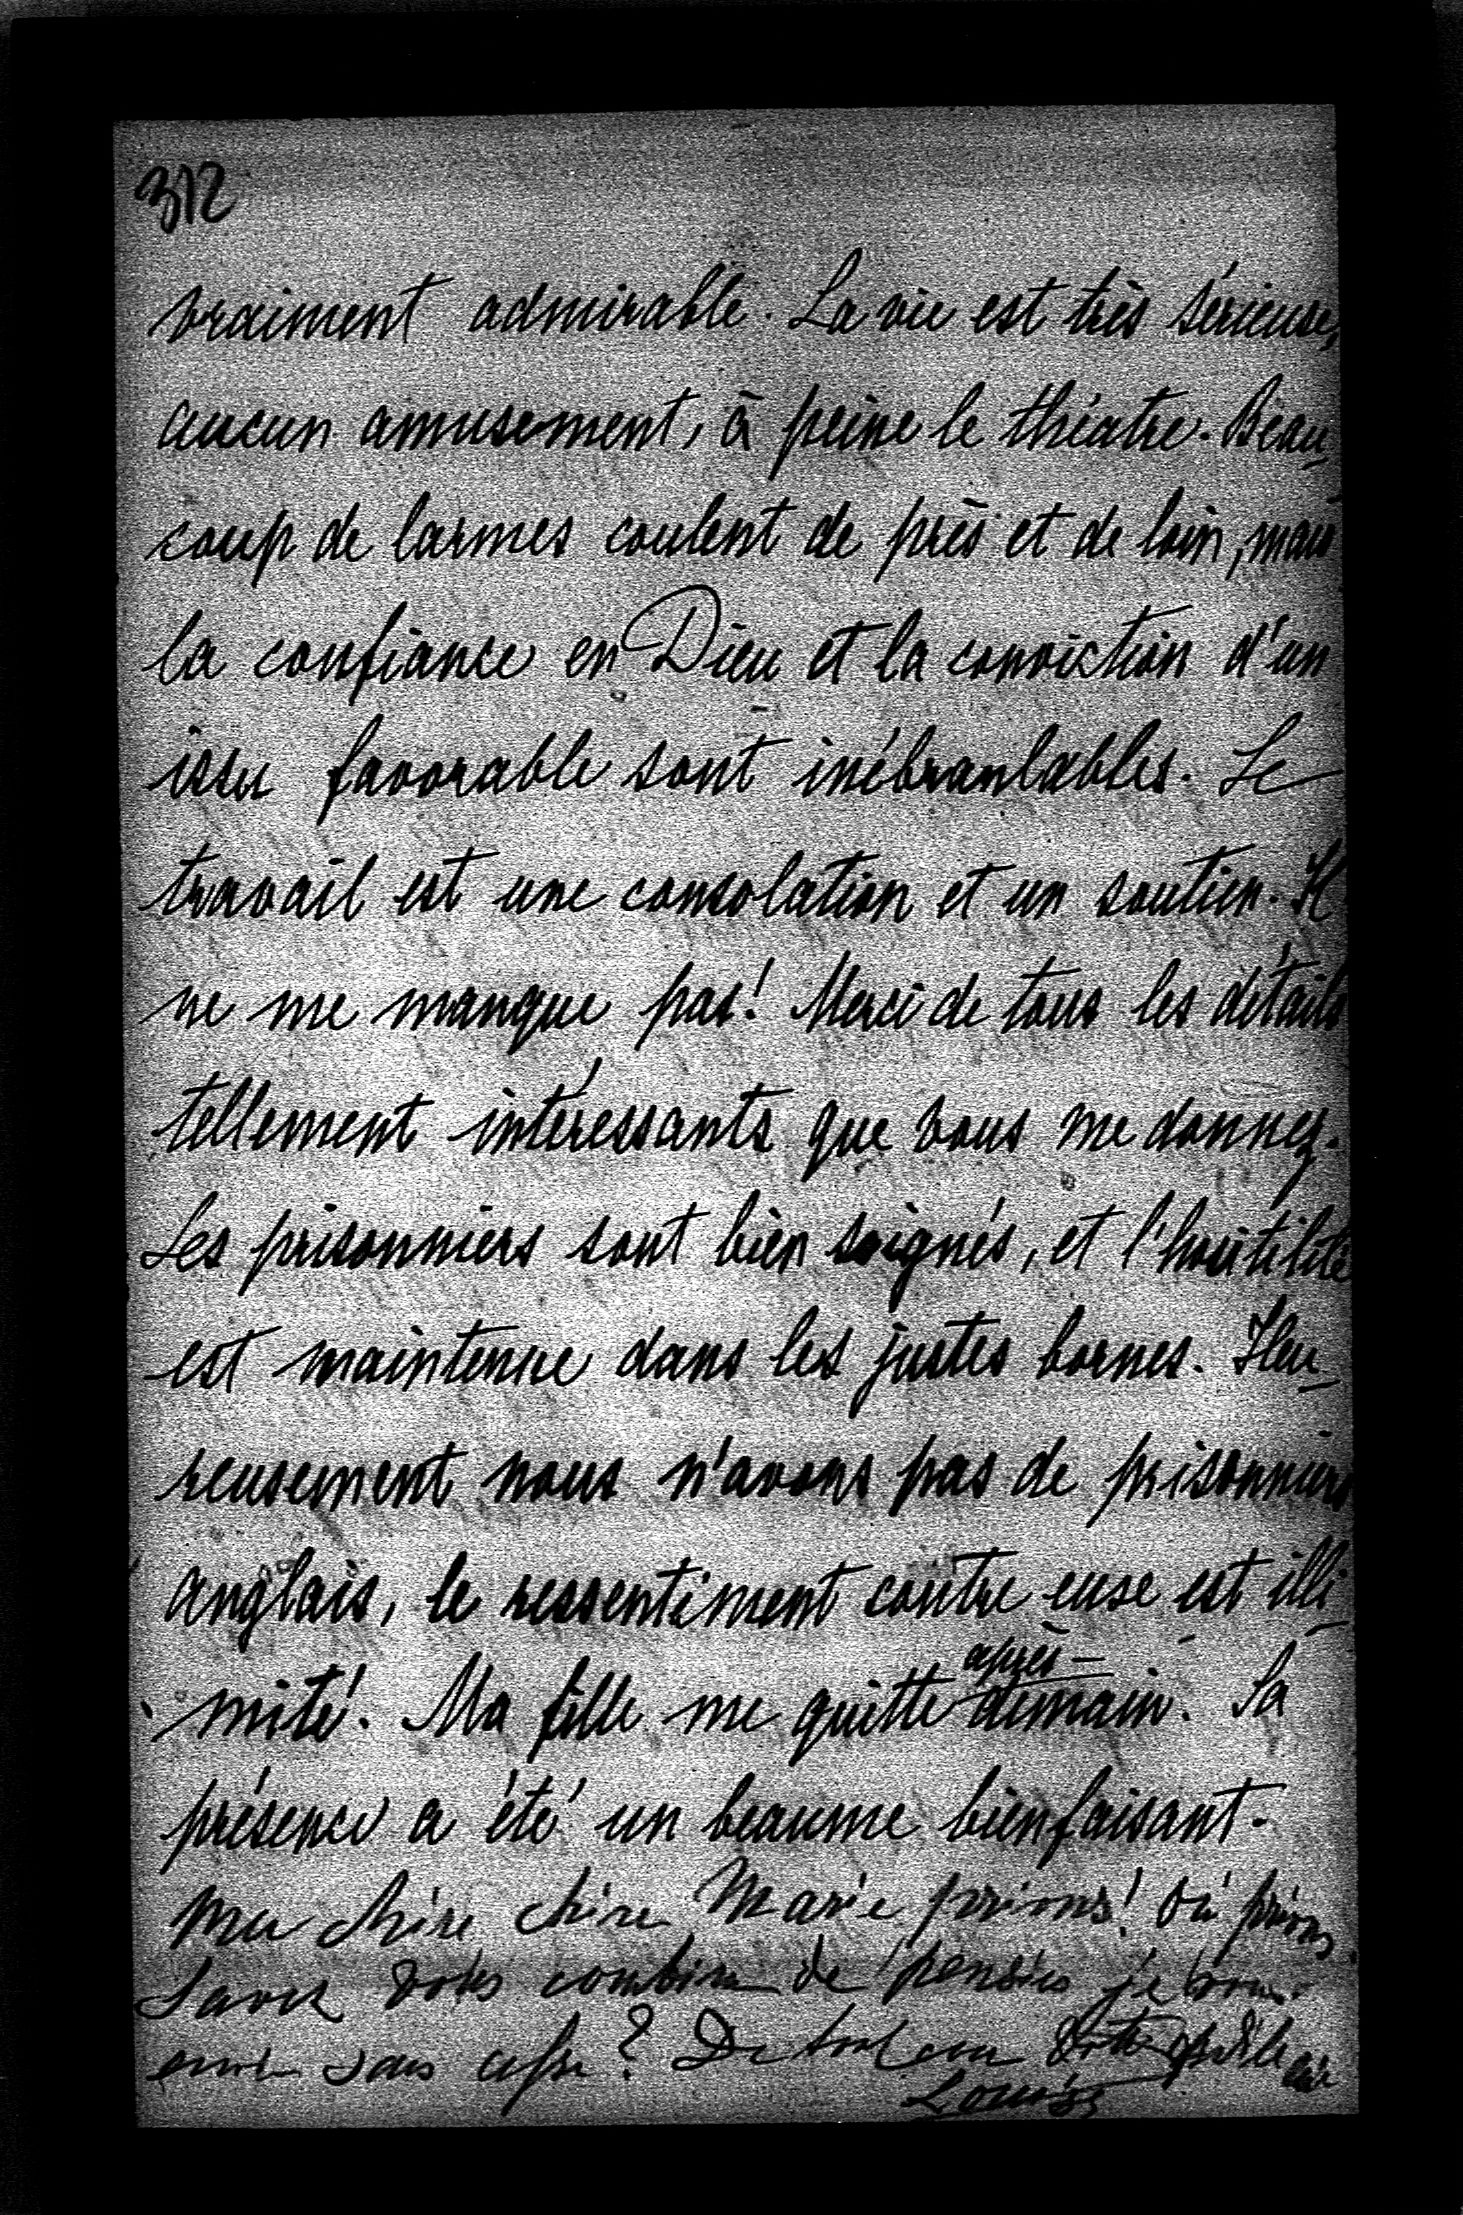 312
vraiment admirable. La vie est très sérieuse,
aucun amusement, à peine le théatre. Beau-
coup de larmes coulent de près et de loin, mais
la confiance en Dieu et la conviction d'un
issu favorable sont inébranlables. Le
travail est une consolation et un soutien. Il
ne me manque pas! Merci de tous les détails
tellement intéressants que vous me donnez.
Les prisonniers sont bien soignés, et l'hostilité
est maintenue dans les justes bornes. Heu-
reusement nous n'avons pas de prisonniers
anglais, le ressentiment contre euse est illi-
mité! Ma fille me quitte après-demain. Sa
présence a été un beaume bienfaisant.
Ma chère chère Marie prions! Oú prions
Savez vous combien de pensées je vous
envoie sans cesse? De tout cœur Votre
Louise